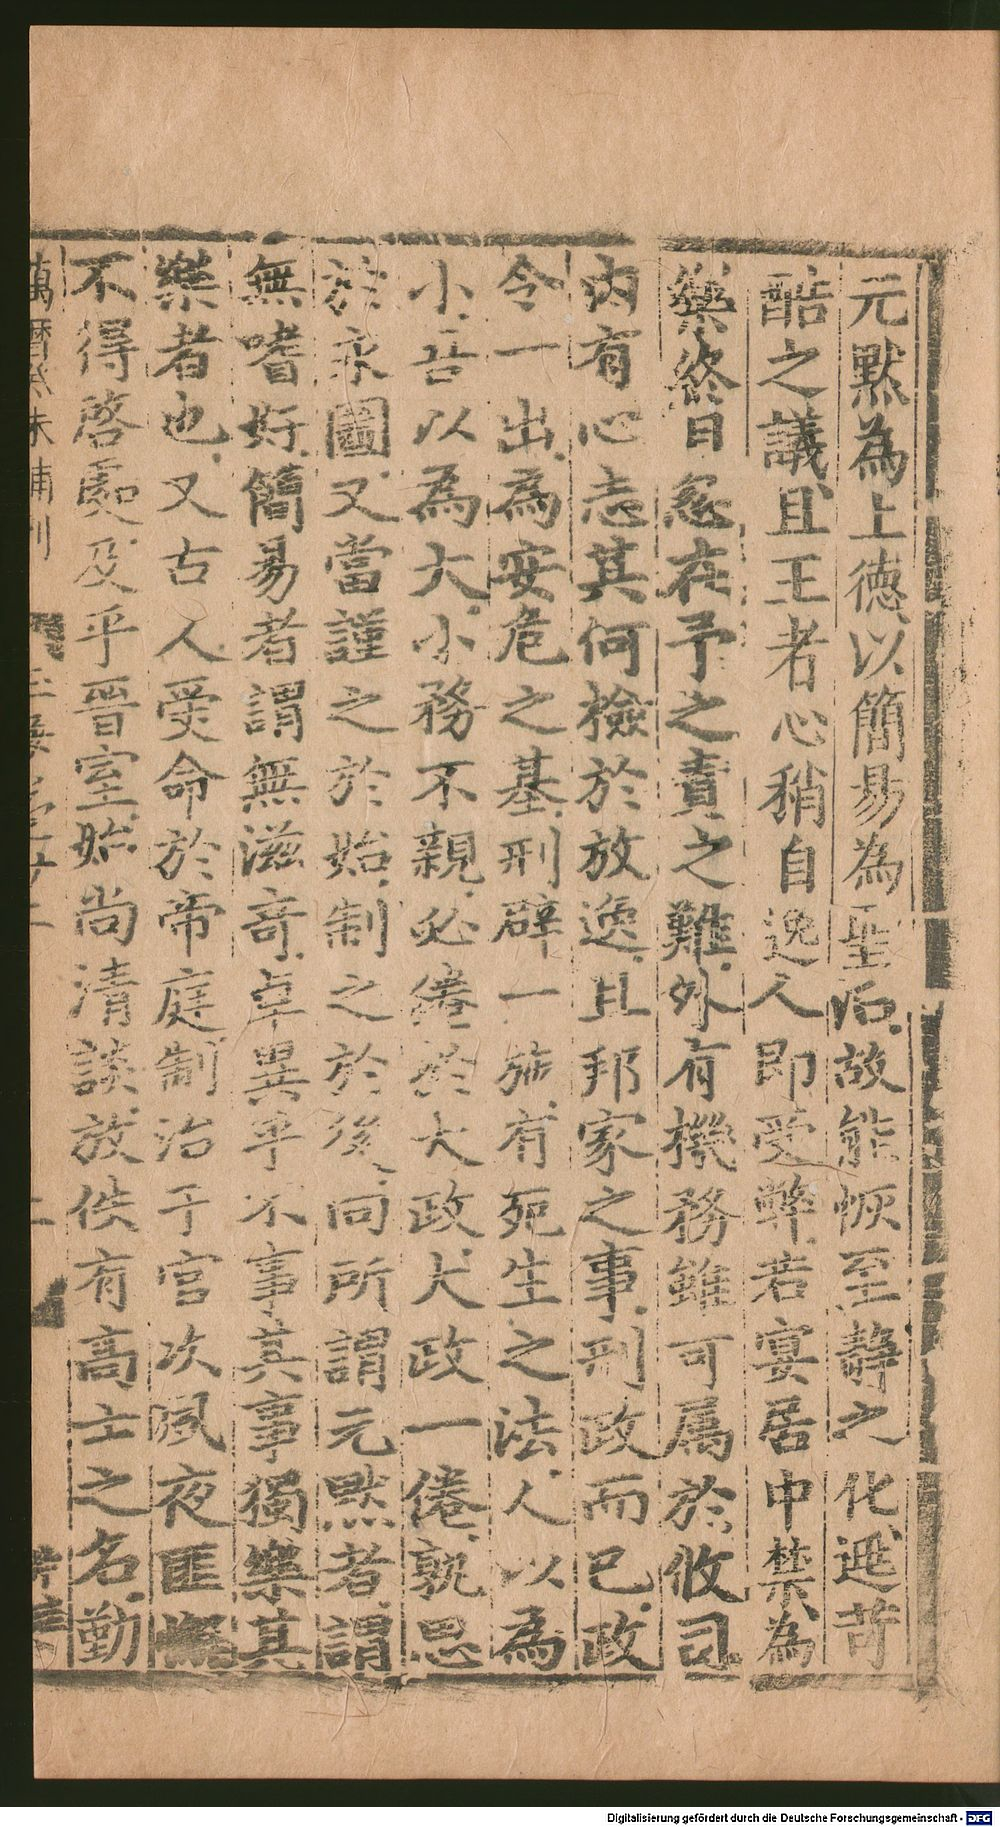 元默為上德以簡易為聖后故能恢至靜之化遞苛
酷之議且王者心稍自逸人即受弊若宴居中禁為
樂終日怨在予之責之難外有機務雖可屬於攸司
內有心志其何檢於放逸且邦家之事刑政而已政
令一出為安危之基刑辟一施有死生之法人以為
小吾以為大小務不親必倦於大政大政一倦孰思
於永圖又當謹之於始制之於後向所謂元默者謂
無嗜好簡易者謂無滋奇卓異乎不事其事獨樂其
樂者也又古人受命於帝庭制治于官次夙夜匪懈
不得啓處及乎晉室始尚清談放佚有高士之名勤
萬曆癸未補刊
Digitalisierung gefördert durch die Deutsche Forschungsgemeinschaft - DFG